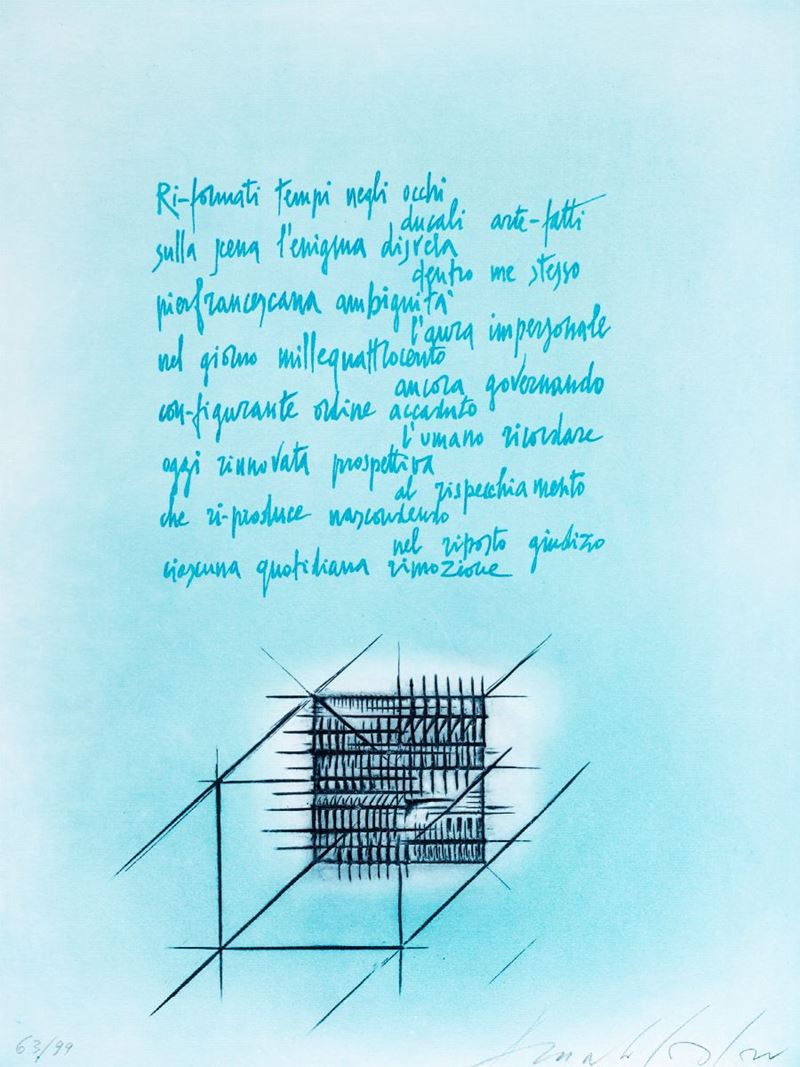 Ri-formati tempi negli occhi
ducali arte-fatti
sulla scena l'enigma disvela
dentro me stesso
pierfrancescana ambiguità
l'aura impersonale
nel giorno millequattrocento
ancora governando
con-figurante ordine accaduto
l'umano ricordare
oggi rinnovata prospettiva
al rispecchiamento
che ri-produce nascondendo
nel riposto giudizio
ciascuna quotidiana rimozione
63/99